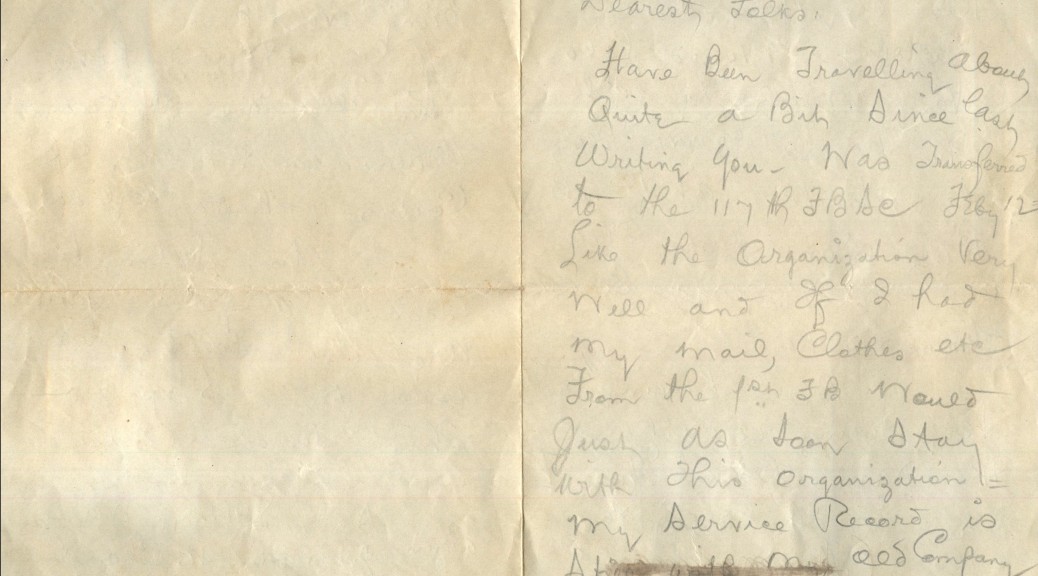 Dearest Folks:
Have Been Travelling About
Quite a Bit Since last
Writing You - Was Transferred
to the 117th FBSc Feby 12
Like the Organization Very
Well and If I had
my mail, Clothes etc
From the 1st FB Would
Just as soon Stay
with This Organization =
my Service Record is
with my old Company